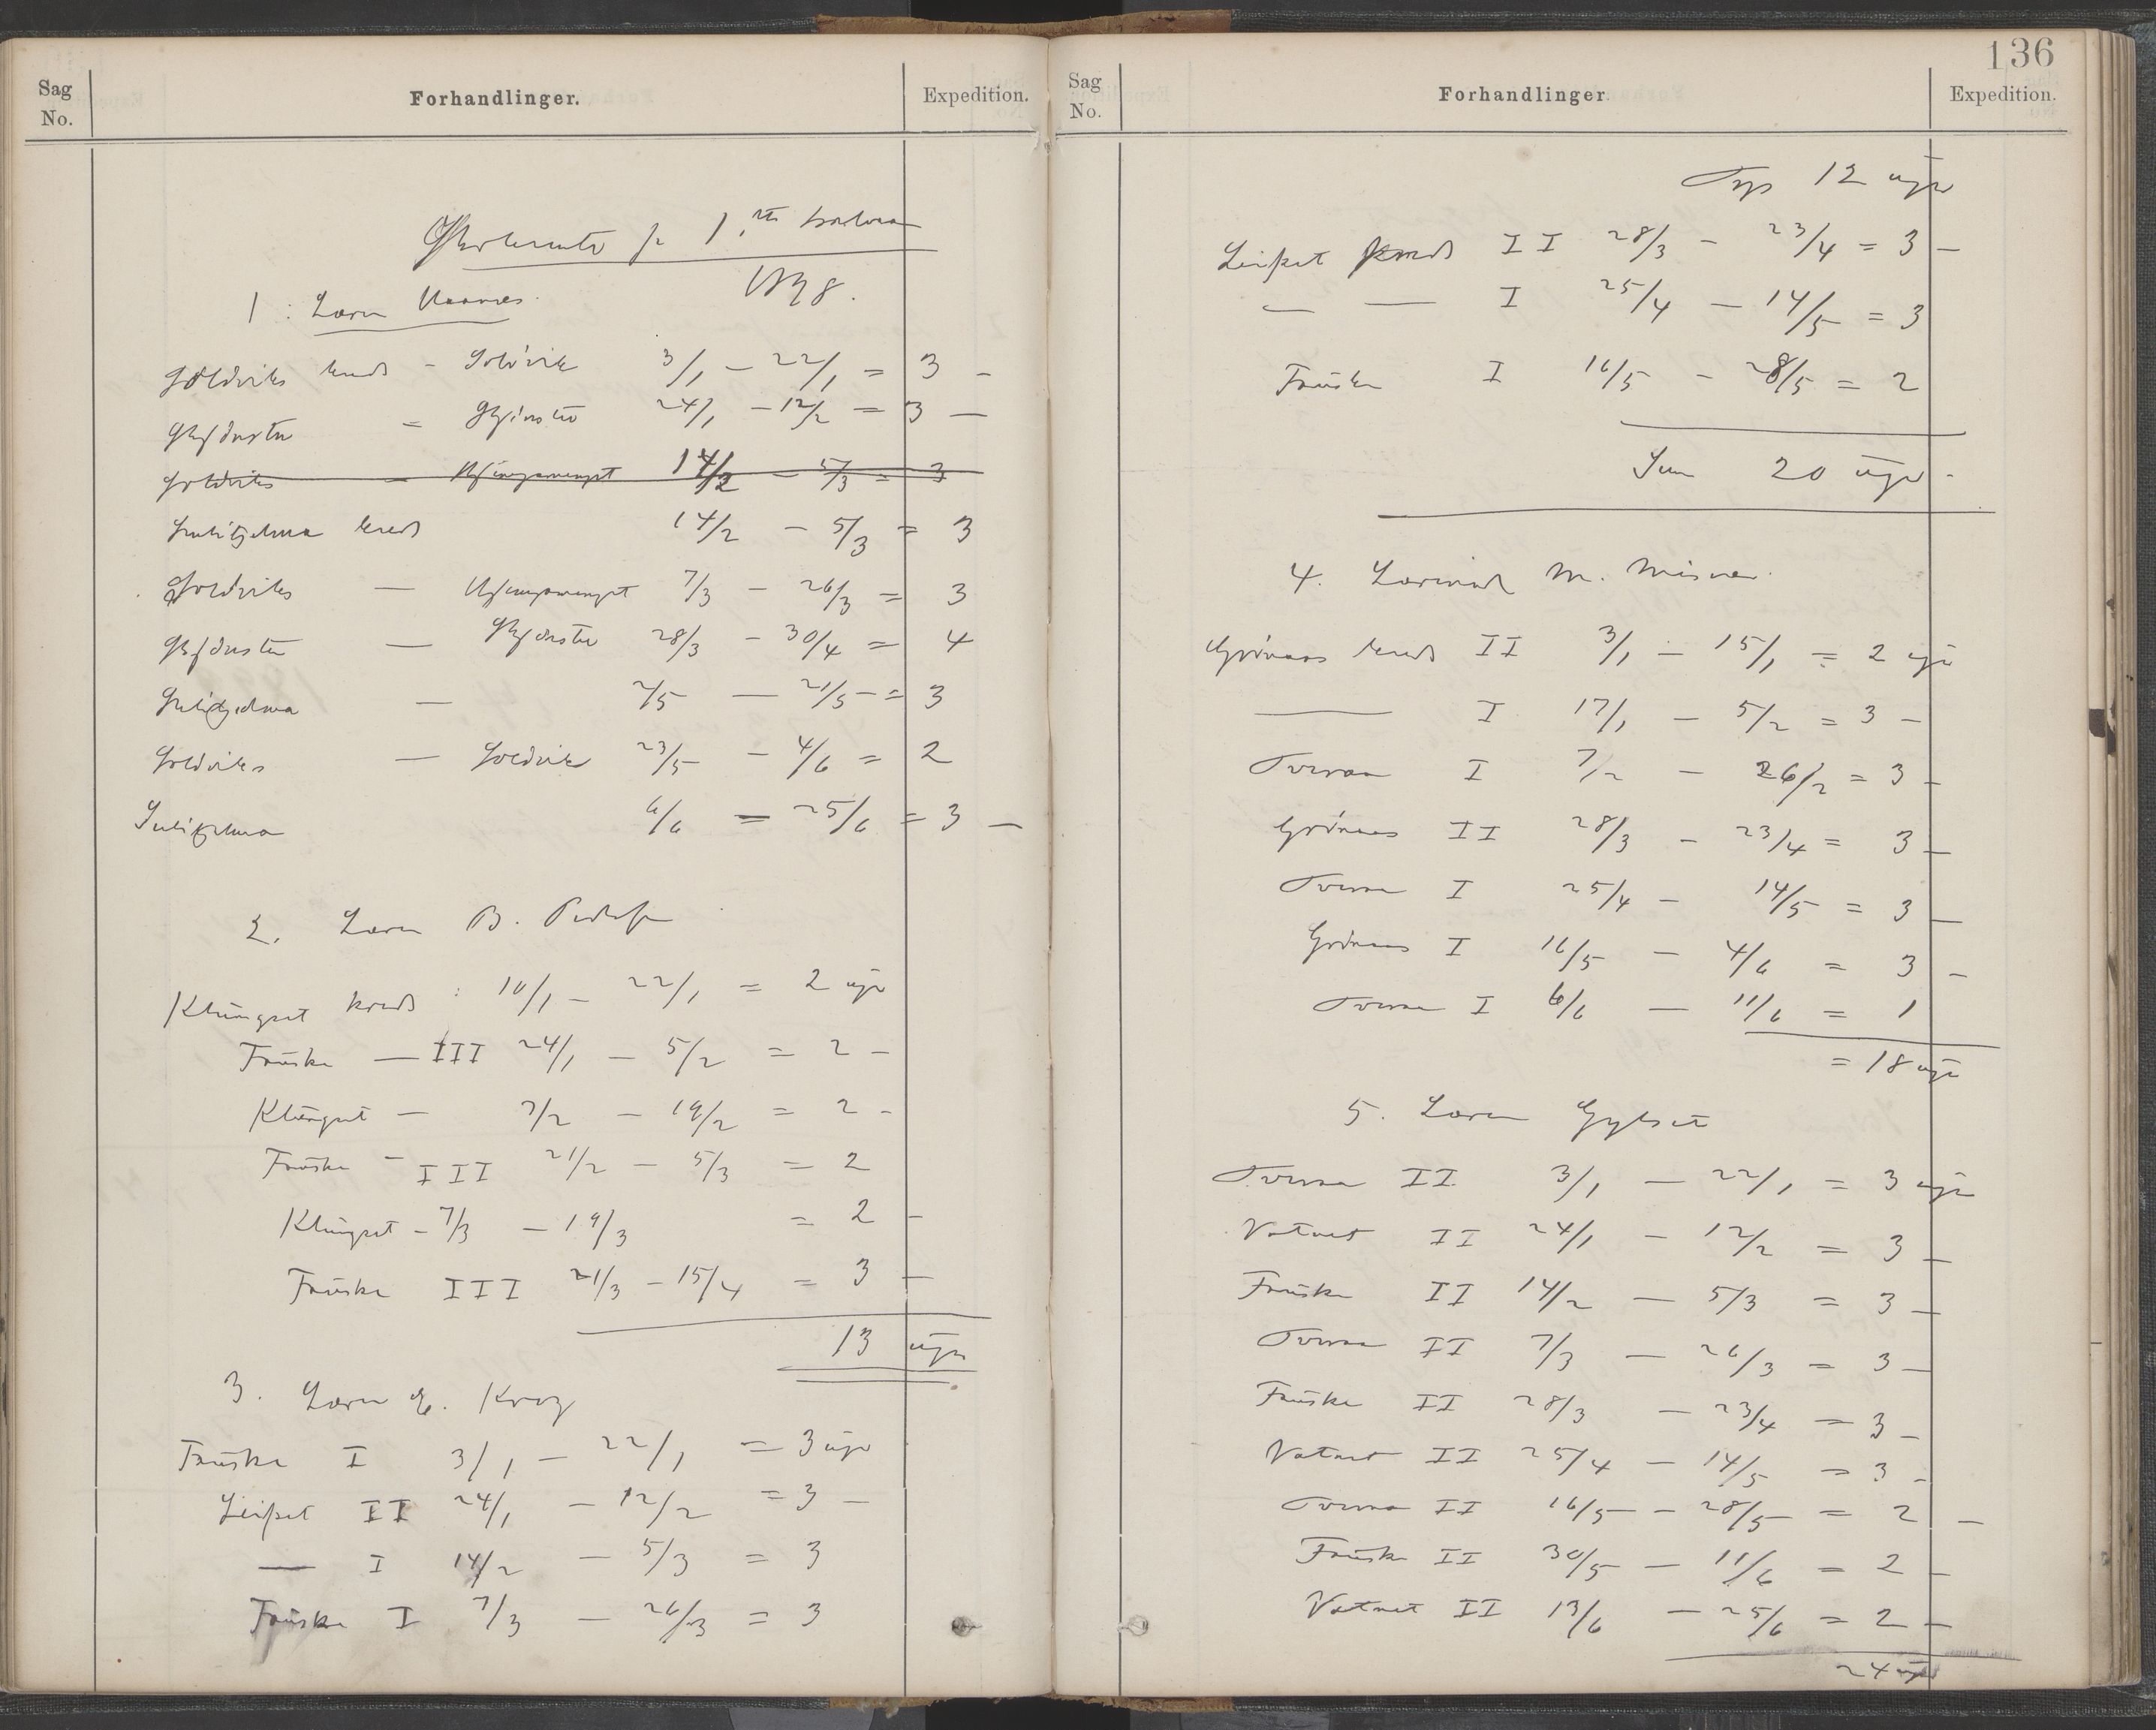 Sag No. Forhandlinger. Expedition.
1ste halvaar
1898.
1: Lærer
Soldviks kreds - Soldvik 3/1 - 22/1 = 3 -
Skjønstu = Skjønstu 24/1 - 12/2 = 3 -
Soldviks - 14/2 - 5/3 = 3
Sulitjelma kreds 14/2 - 5/3 = 3
Soldviks - 7/3 - 26/3 = 3
Skjønstu - Skjønstu 28/3 - 30/4 = 4
Sulitjelma - 2/5 - 21/5 = 3
Soldviks - Soldvik 23/5 - 4/6 = 2
Sulitjelma 6/6 = 25/6 = 3 -
2. Lærer B. Pedersen
Klungset kreds : 10/1 - 22/1 = 2 uger
Fauske - III 24/1 - 5/2 = 2 -
Klungset - 7/2 - 19/2 = 2 -
Fauske - III 21/2 - 5/3 = 2
Klungset - 7/3 - 19/3 = 2 -
Fauske III 21/3 - 15/4 = 3 -
13 uger
3. Lærer E. Krog
Fauske I 3/1 - 22/1 = 3 uger
Leifset II 24/1 - 12/2 = 3 -
- I 14/2 - 5/3 = 3
Fauske I 7/3 - 26/3 = 3
136
Sag No. Forhandlinger Expedition.
12 uger
Leifset kreds II 28/3 - 23/4 = 3 -
- - I 25/4 - 14/5 = 3
Fauske I 16/5 - 28/5 = 2
Sum 20 uger -
4. Lærerinde M. Misvær.
Grønaas kreds II 3/1 - 15/1 = 2 uger
- I 17/1 - 5/2 = 3 -
Tveraa I 7/2 - 26/2 = 3 -
Grønaas II 28/3 - 23/4 = 3 -
Tveraa I 25/4 - 14/5 = 3 -
Grønaas I 16/5 - 4/6 = 3 -
Tveraa I 6/6 - 11/6 = 1
= 18 uger
5. Lærer Gylseth
Tveraa II 3/1 - 22/1 = 3 uger
Vatnet II 24/1 - 12/2 = 3 -
Fauske II 14/2 - 5/3 = 3 -
Tveraa II 7/3 - 26/3 = 3 -
Fauske II 28/3 - 23/4 = 3 -
Vatnet II 25/4 - 14/5 = 3 -
Tveraa II 16/5 - 28/5 = 2 -
Fauske II 30/5 - 11/6 = 2 -
Vatnet II 13/6 - 25/6 = 2 -
24 uger